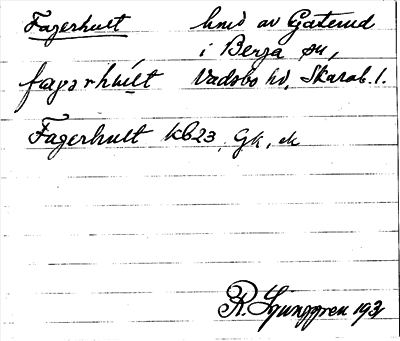 Fagerhult hmd av Gaterud
i Berga sn,
fagərhúlt Vadsbo hd, Skarab. l.
Fagerhult KB23, Gk, ek
R. Ljunggren 193